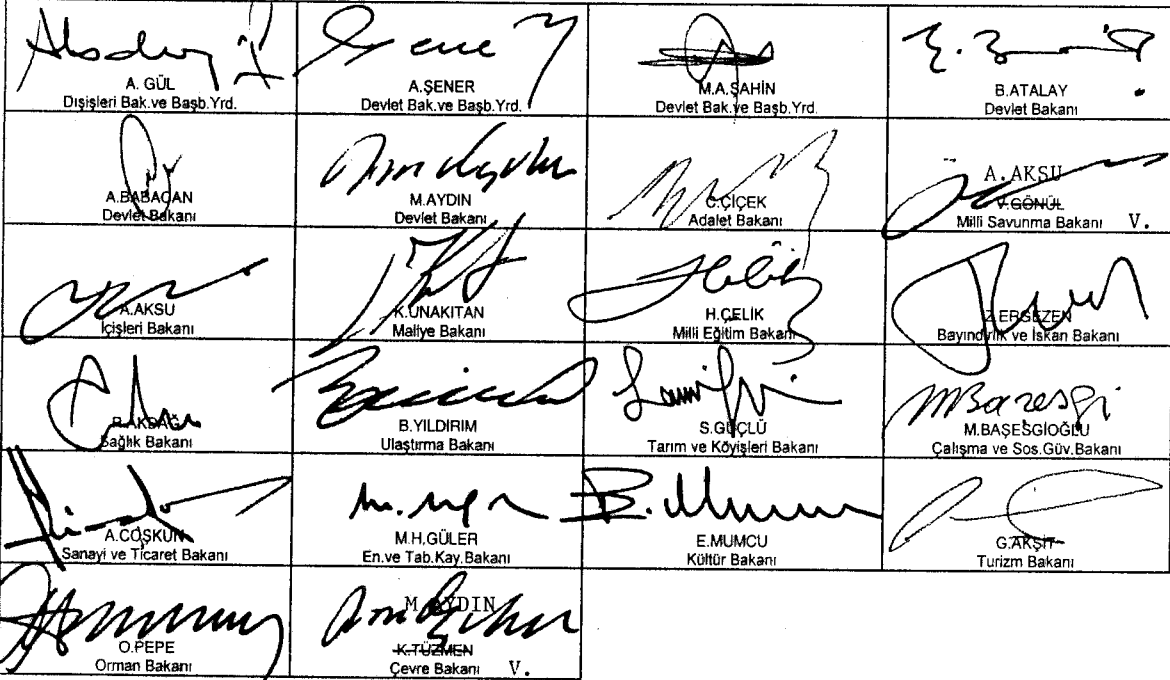 A. GÜL
Dışişleri Bak.ve Başb.Yrd.
A.ŞENER
Devlet Bak.ve Başb.Yrd.
M.A.ŞAHİN
Devlet Bak.ve Başb.Yrd.
B.ATALAY
Devlet Bakanı
A.BABACAN
Devlet Bakanı
M.AYDIN
Devlet Bakanı
C.ÇİÇEK
Adalet Bakanı
A.AKSU
V.GÖNÜL
Milli Savunma Bakanı V.
A.AKSU
İçişleri Bakanı
K.UNAKITAN
Maliye Bakanı
H.ÇELİK
Milli Eğitim Bakanı
Z.ERGEZEN
Bayındırlık ve İskan Bakanı
R.AKDAĞ
Sağlık Bakanı
B.YILDIRIM
Ulaştırma Bakanı
S.GÜÇLÜ
Tarım ve Köyişleri Bakanı
M.BAŞESGİOĞLU
Çalışma ve Sos.Güv.Bakanı
A.COŞKUN
Sanayi ve Ticaret Bakanı
M.H.GÜLER
En.ve Tab.Kay.Bakanı
E.MUMCU
Kültür Bakanı
G.AKŞİT
Turizm Bakanı
O.PEPE
Orman Bakanı
M.AYDIN
K.TÜZMEN
Çevre Bakanı V.